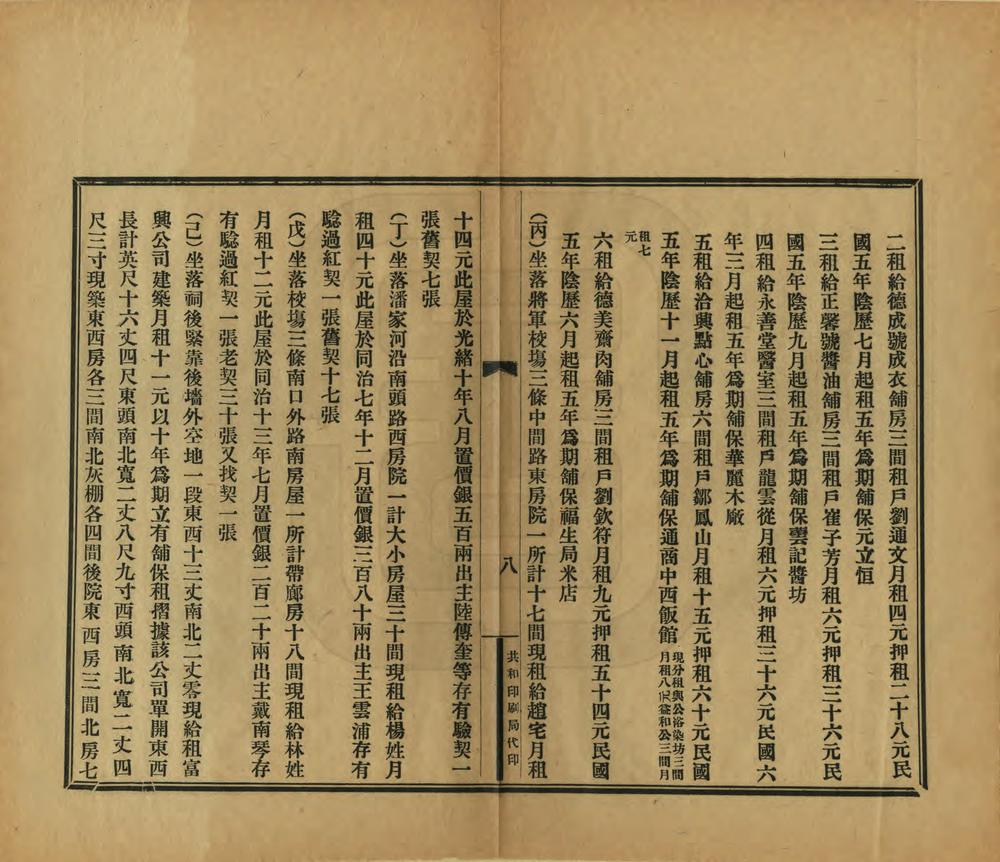 二租給德成號成衣舖房三間租戶劉通文月租四元押租二十八元民
國五年陰歷七月起租五年爲期舖保元立恒
三租給正馨號醬油舖房三間租戶崔子芳月租六元押租三十六元民
國五年陰歷九月起租五年爲期舖保雲記醬坊
四租給永善堂醫室三間租戶龍雲從月租六元押租三十六元民國六
年三月起租五年爲期舖保華麗木廠
五租給洽興點心舖房六間租戶鄒鳳山月租十五元押租六十元民國
五年陰歷十一月起租五年爲期舖保通商中西飯館現分租與公浴染坊三間
月租八元益和公三間月
租七
元
六租給德美齋肉舖房三間租戶劉欽符月租九元押租五十四元民國
五年陰歷六月起租五年爲期舖保福生局米店
(丙)坐落將軍校塲三條中間路東房院一所計十七間現租給趙宅月租
八
共和印刷局代印
十四元此屋於光緒十年八月置價銀五百兩出主陸傳奎等存有驗契一
張舊契七張
(丁)坐落潘家河沿南頭路西房院一計大小房屋三十間現租給楊姓月
租四十元此屋於同治七年十二月置價銀三百八十兩出主王雲浦存有
驗過紅契一張舊契十七張
(戊)坐落校塲三條南口外路南房屋一所計帶廊房十八間現租給林姓
月租十二元此屋於同治十三年七月置價銀二百二十兩出主戴南琴存
有驗過紅契一張老契三十張又找契一張
(己)坐落祠後緊靠後墻外空地一段東西十三丈南北二丈零現給租富
興公司建築月租十一元以十年爲期立有舖保租摺據該公司單開東西
長計英尺十六丈四尺東頭南北寬二丈八尺九寸西頭南北寬二丈四
尺三寸現築東西房各三間南北灰棚各四間後院東西房三間北房七